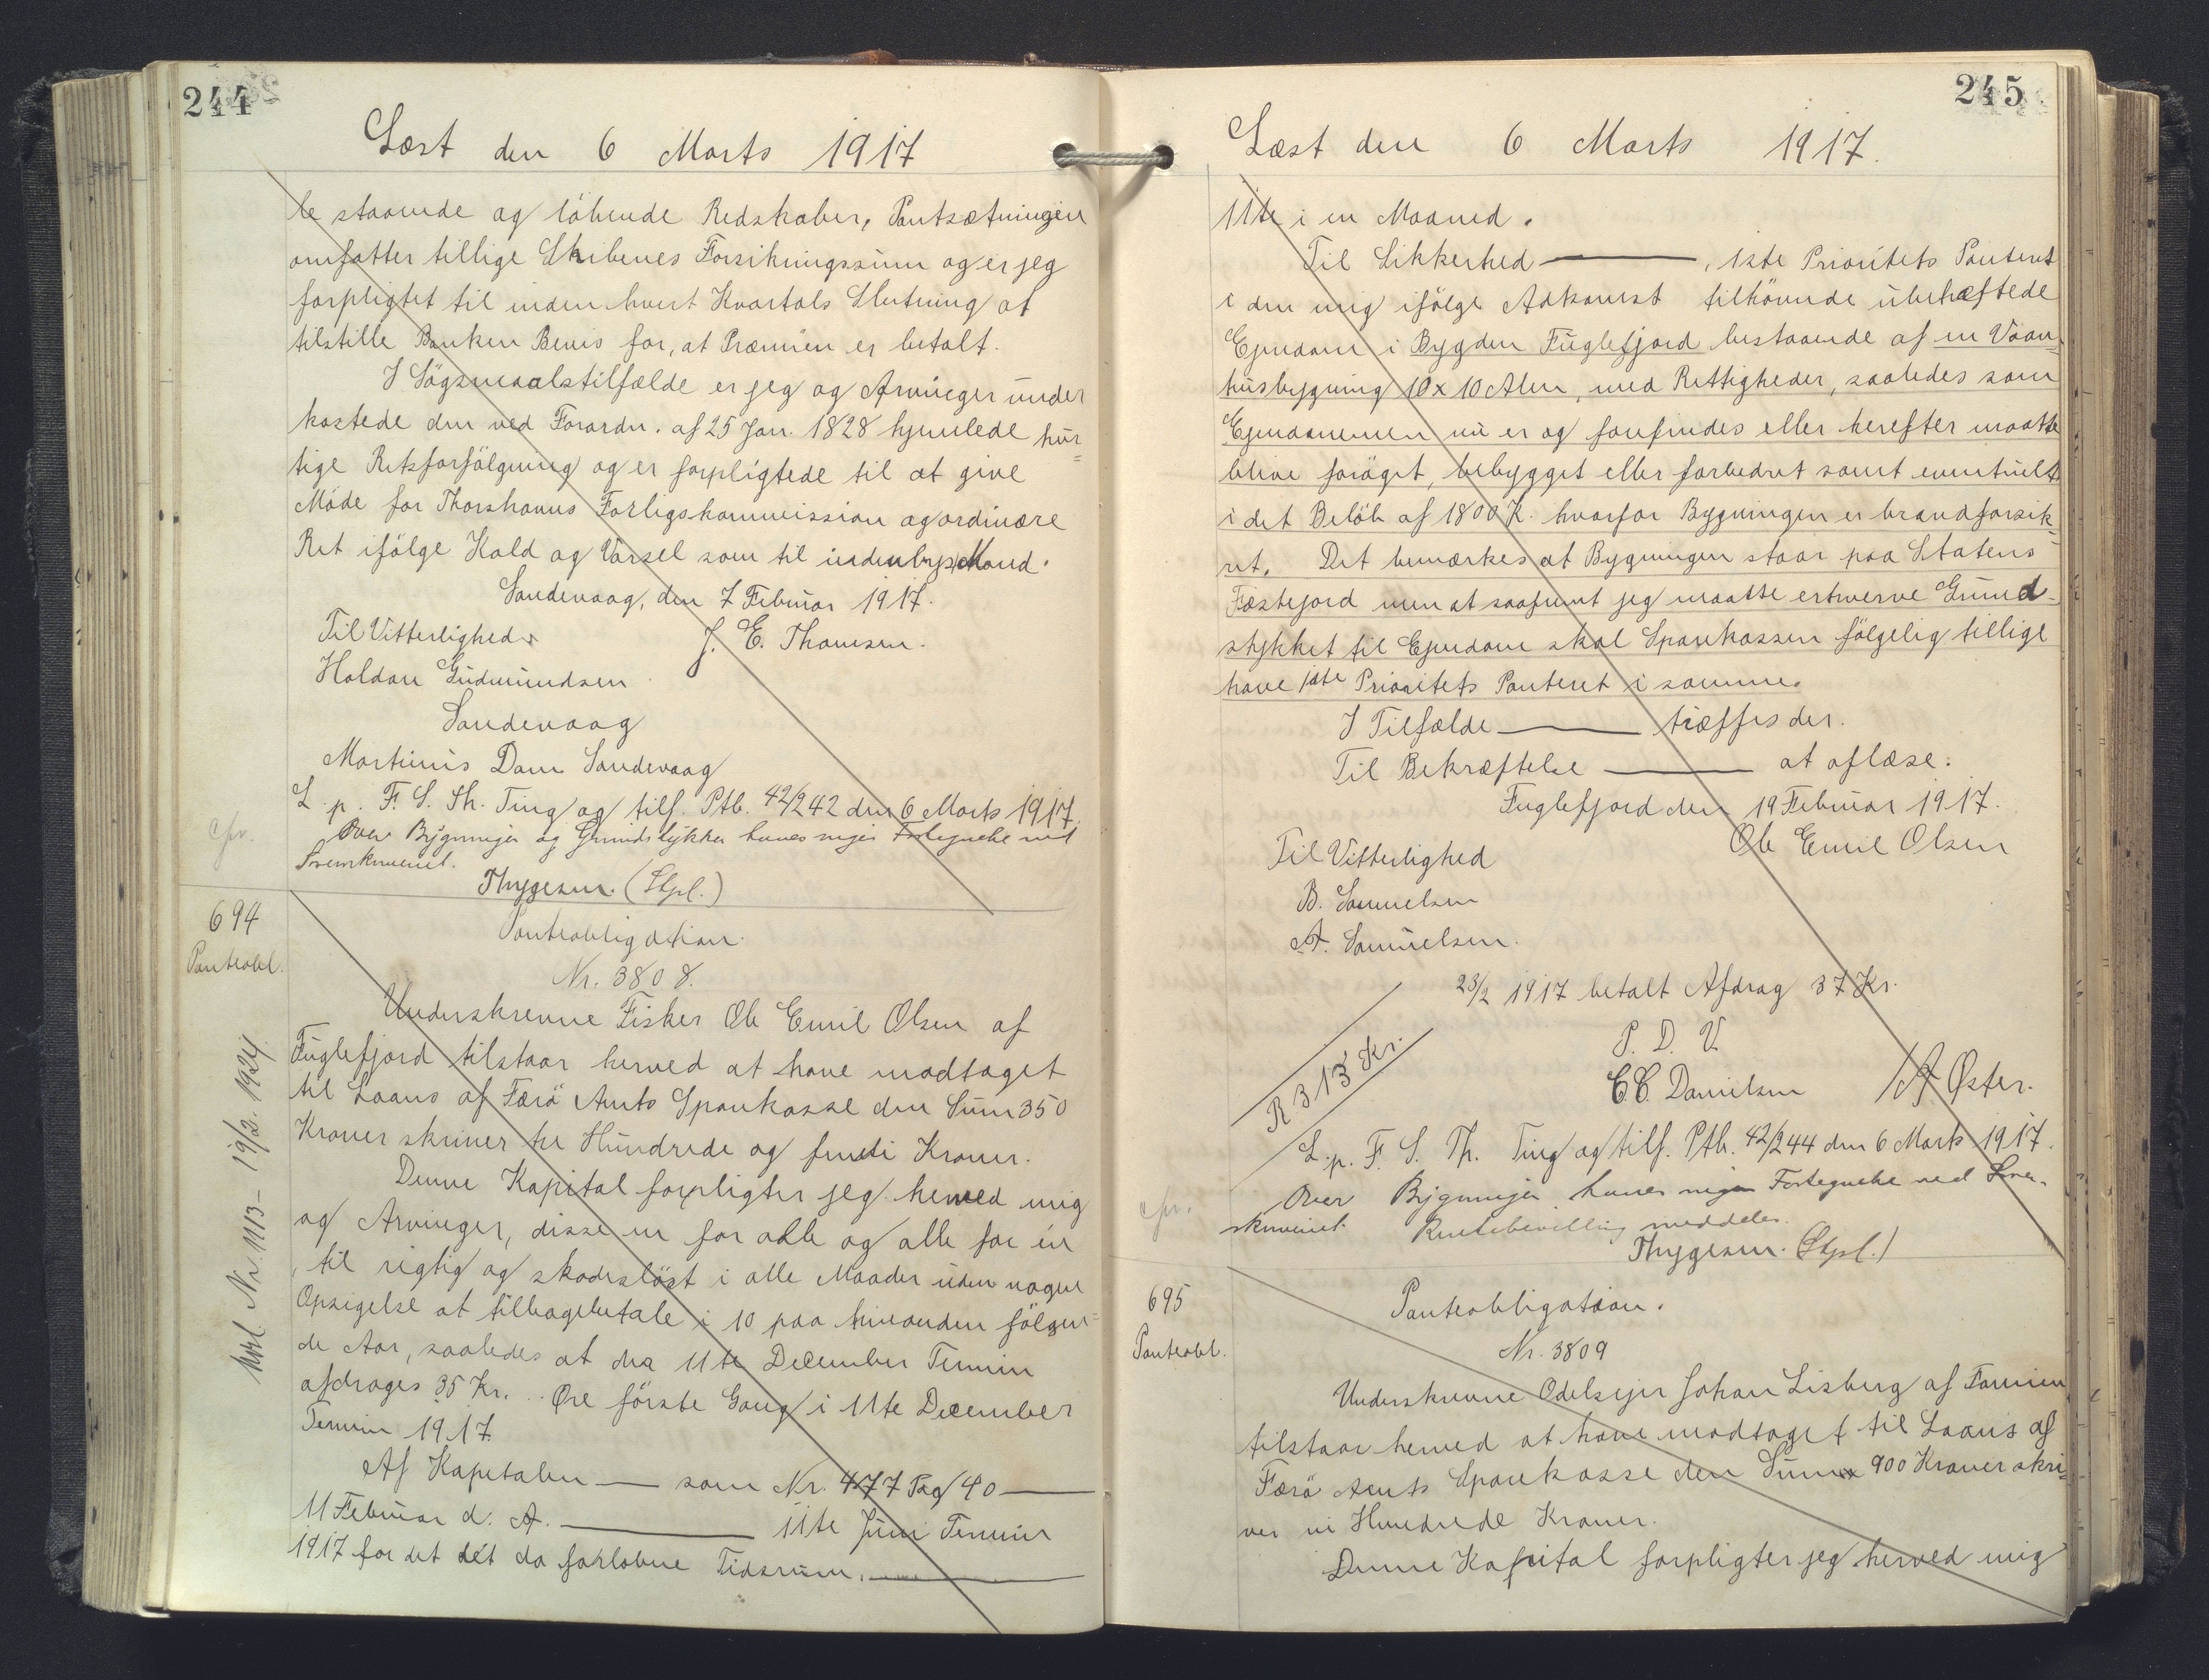 244
Læst den 6 Marts 1917
le staaende og löbende Redskaber, Pantsætningen
omfatter tillige Skibenes Forsikringssum og er jeg
forpligtet til inden hvert Kvartals Slutning at
tilstille Banken Bevis for, at Præmien er betalt.
I Sögsmaalstilfælde er jeg og Arvinger under
kastede den ved Forordn. af 25 Jan. 1828 hjemlede hur=
tige Retsforfölgning og er forpligtede til at give
Möde for Thorshavns Forligskommission og ordinære
Ret ifölge Kald og Varsel som til indenbys Mand.
Sandevaag, den 7 Februar 1917.
Til Vitterlighed J. E. Thomsen.
Haldan Gudmundsen
Sandevaag
Martinus Dam Sandevaag
L. p. F. S. Th. Ting og tilf. Ptb. 42/242 den 6 Marts 1917.
Over Bygninger og Grundstykker haves ingen Fortegnelse ved
Sorenskriveriet.
Thygesen. (Stpl.)
cfr.
694
Panteobl.
Panteobligation.
Nr. 3808.
Underskrevne Fisker Ole Emil Olsen af
Fuglefjord tilstaar herved at have modtaget
til Laans af Færö Amts Sparekasse den Sum 350
Kroner skriver tre Hundrede og femti Kroner.
Denne Kapital forpligter jeg herved mig
og Arvinger, disse en for alle og alle for én
, til rigtig og skadeslöst i alle Maader uden nogen
Opsigelse at tilbagebetale i 10 paa hinanden fölgen=
de Aar, saaledes at der 11te December Termin
afdrages 35 Kr. .. Øre förste Gang i 11te December
Termin 1917.
Af Kapitalen — som Nr. 477 Pag 40 —
11 Februar d. A. — 11te Juni Termin
1917 for det dét da forløbne Tidsrum. —
Nr. 1113 - 19/2 1924
245
Læst den 6 Marts 1917.
11te i en Maaned.
Til Sikkerhed — , 1ste Prioritets Panteret
i den mig ifölge Adkomst tilhörende ubehæftede
Ejendom i Bygden Fuglefjord bestaaende af en Vaan=
husbygning 10 x 10 Alen, med Rettigheder, saaledes som
Ejendommen nu er og forefindes eller herefter maatte
blive foröget, bebygget eller forbedret samt eventuelt
i det Belöb af 1800 K. hvorfor Bygningen er brandforsik=
ret. Det bemærkes at Bygningen staar paa Statens
Fæstejord men at saafremt jeg maatte erhverve Grund=
stykket til Ejendom skal Sparekassen fölgelig tillige
have 1ste Prioritets Panteret i samme.
I Tilfælde — træffes der.
Til Bekræftelse — at aflæse.
Fuglefjord den 19 Februar 1917.
Ole Emil Olsen
Til Vitterlighed
B. Samuelsen
A. Samuelsen.
23/2 1917 betalt Afdrag 37 Kr.
P. D. V.
R 313 Kr.
C.C. Danielsen /A Øster.
L. p. F. S. Th. Ting og tilf. Ptb. 42/244 den 6 Marts 1917.
Over Bygninger haves ingen Fortegnelse ved Soren-
skriveriet. Rentebevilling meddeles.
Thygesen. (Stpl.)
cfr.
695
Panteobl.
Panteobligation.
Nr. 3809
Underskrevne Odelsejer Johan Lisberg af Famien
tilstaar herved at have modtaget til Laans af
Færö Amts Sparekasse den Sum 900 Kroner skri=
ver ni Hundrede Kroner.
Denne Kapital forpligter jeg herved mig